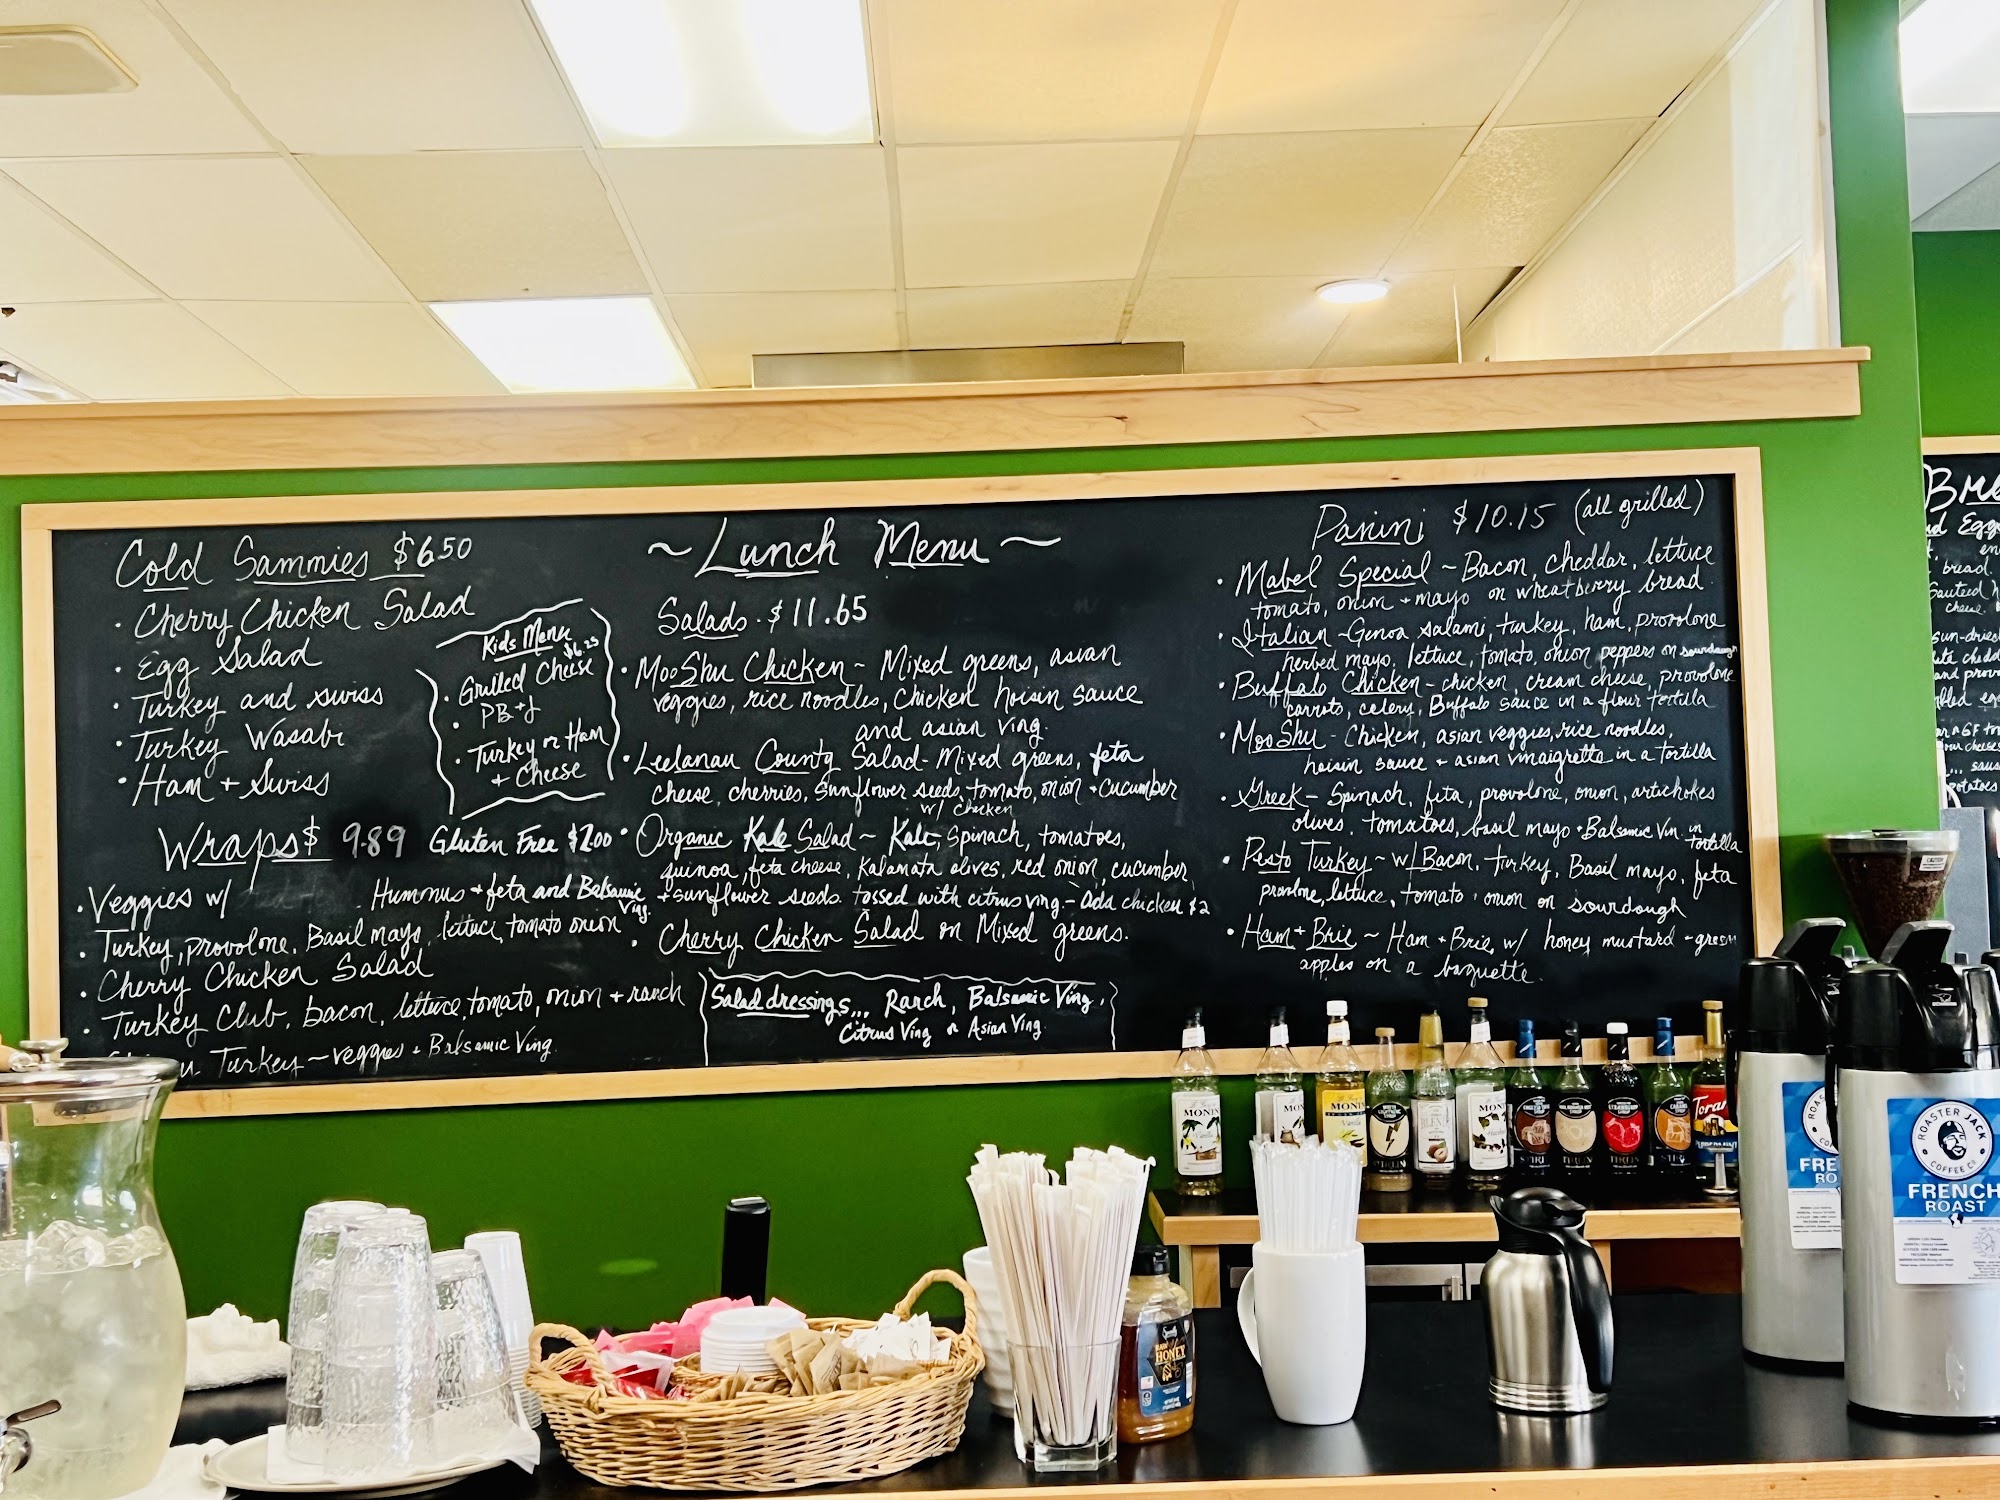 ~ Lunch Menu ~
Cold Sammies $6.50
· Cherry Chicken Salad
· Egg Salad
· Turkey and swiss
· Turkey Wasabi
· Ham + Swiss
Kids Menu
$6.25
· Grilled Cheese
· PB+J
· Turkey or Ham
+ Cheese
Wraps $ 9.89 Gluten Free $2.00
· Veggies w/ Hummus + feta and Balsamic
Ving.
· Turkey, provolone, Basil mayo, lettuce, tomato onion
· Cherry Chicken Salad
· Turkey Club, bacon, lettuce, tomato, onion + ranch
Turkey ~ veggies + Balsamic Ving.
Salads · $11.65
· Moo Shu Chicken ~ Mixed greens, asian
veggies, rice noodles, Chicken hoisin sauce
and asian ving.
· Leelanau County Salad - Mixed greens, feta
cheese, cherries, sunflower seeds, tomato, onion + cucumber
w/ chicken
· Organic Kale Salad ~ Kale, Spinach, tomatoes,
quinoa, feta cheese, Kalamata olives, red onion, cucumber
+ sunflower seeds. tossed with citrus ving. - Add chicken $2
· Cherry Chicken Salad on Mixed greens.
Salad dressings... Ranch, Balsamic Ving.,
Citrus Ving or Asian Ving.
Panini $10.15 (all grilled)
· Mabel Special ~ Bacon, cheddar, lettuce
tomato, onion + mayo on wheatberry bread.
· Italian - Genoa salami, turkey, ham, provolone
herbed mayo, lettuce, tomato, onion peppers on sourdough
· Buffalo Chicken - chicken, cream cheese, provolone
carrots, celery, Buffalo sauce in a flour tortilla
· Moo Shu - Chicken, asian veggies, rice noodles,
hoisin sauce + asian vinaigrette in a tortilla
· Greek - Spinach, feta, provolone, onion, artichokes
olives, tomatoes, basil mayo + Balsamic Vin. in
tortilla
· Pesto Turkey ~ w/ Bacon, turkey, Basil mayo, feta
provolone, lettuce, tomato, onion on sourdough
· Ham + Brie ~ Ham + Brie w/ honey mustard + green
apples on a baguette.
bread.
MONIN
MONIN
Vanilla
MONIN
Torani
RAW
HONEY
FRE
RO
ROASTER JACK
COFFEE CO
FRENCH
ROAST